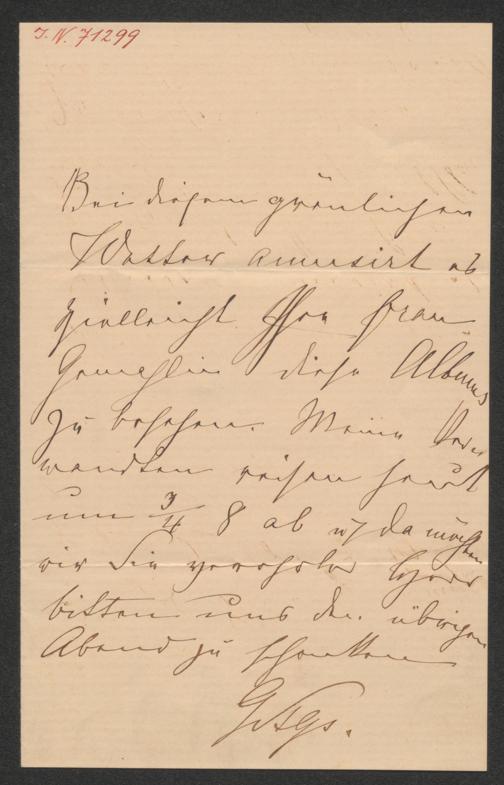 J. N. 71299
Bei diesem gräulichen
Wetter amusirt es
vielleicht Ihre Frau
Gemahlin diese Albums
zu besehen. Meine Ver
wandten reisen heut
um 3/4 8 ab u da möchten
wir Sie verehrter Herr
bitten uns den übrigen
Abend zu schenken